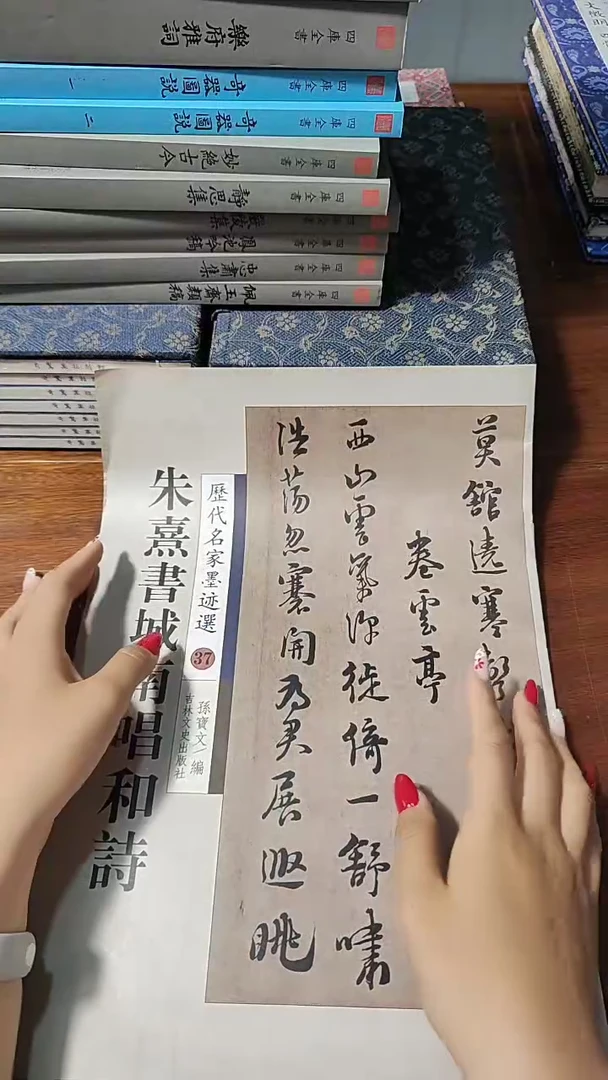 四庫全書 樂府雅詞
四庫全書 奇器圖說 一
四庫全書 奇器圖說 二
四庫全書 妙絕古今
四庫全書 靜思集
四庫全書 鳳池吟稿
四庫全書 忠肅集
四庫全書 佩玉齋類稿
莫館遶寒聲
卷雲亭
西山雲氣深徙倚一舒嘯
浩蕩忽褰開為君展遐眺
歷代名家墨迹選 37
孫寶文 編
吉林文史出版社
朱熹書城南唱和詩